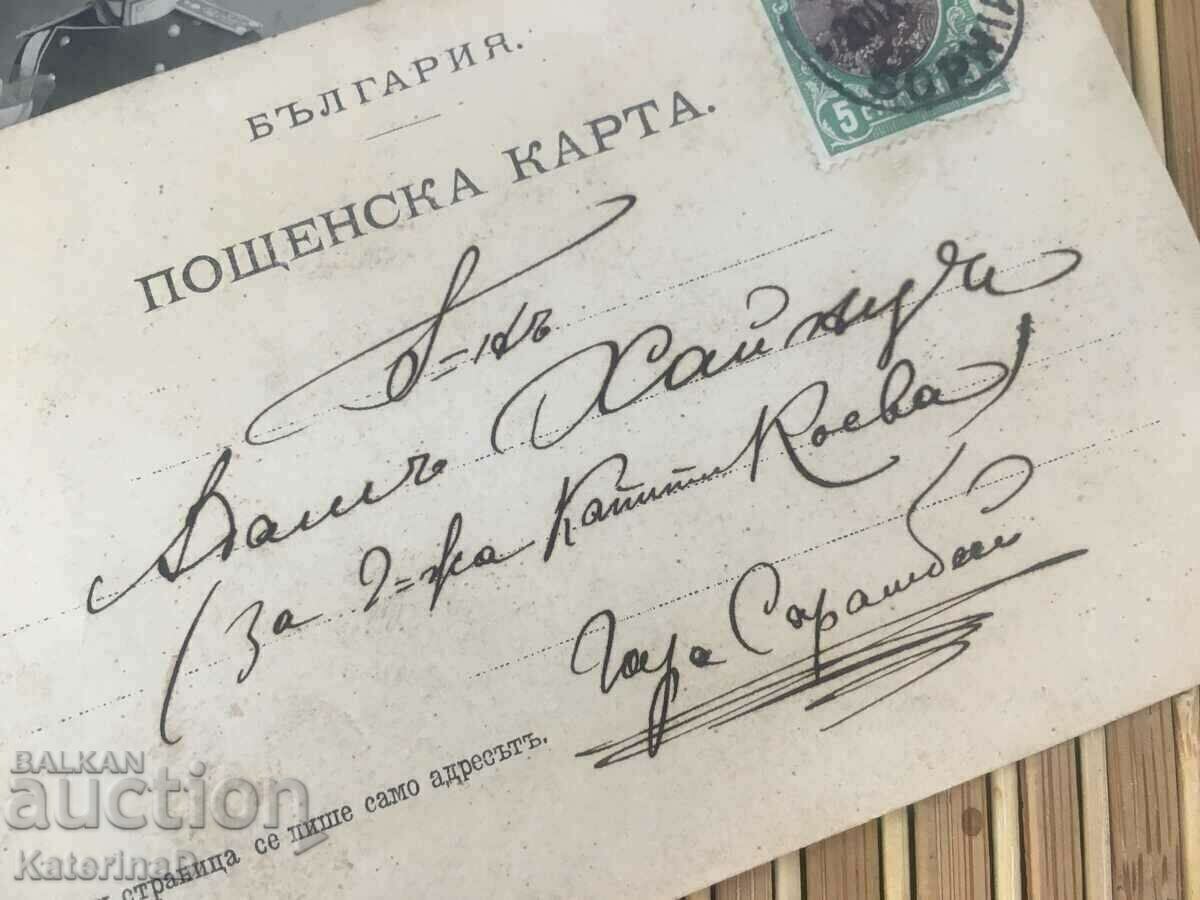 БЪЛГАРИЯ.
ПОЩЕНСКА КАРТА.
5
SOPHIA
Г-нъ
Хайнуч
(За Г-жа Капит. Коева)
Гара Сарамбей
страница се пише само адресътъ.
BALKAN
auction
KaterinaD